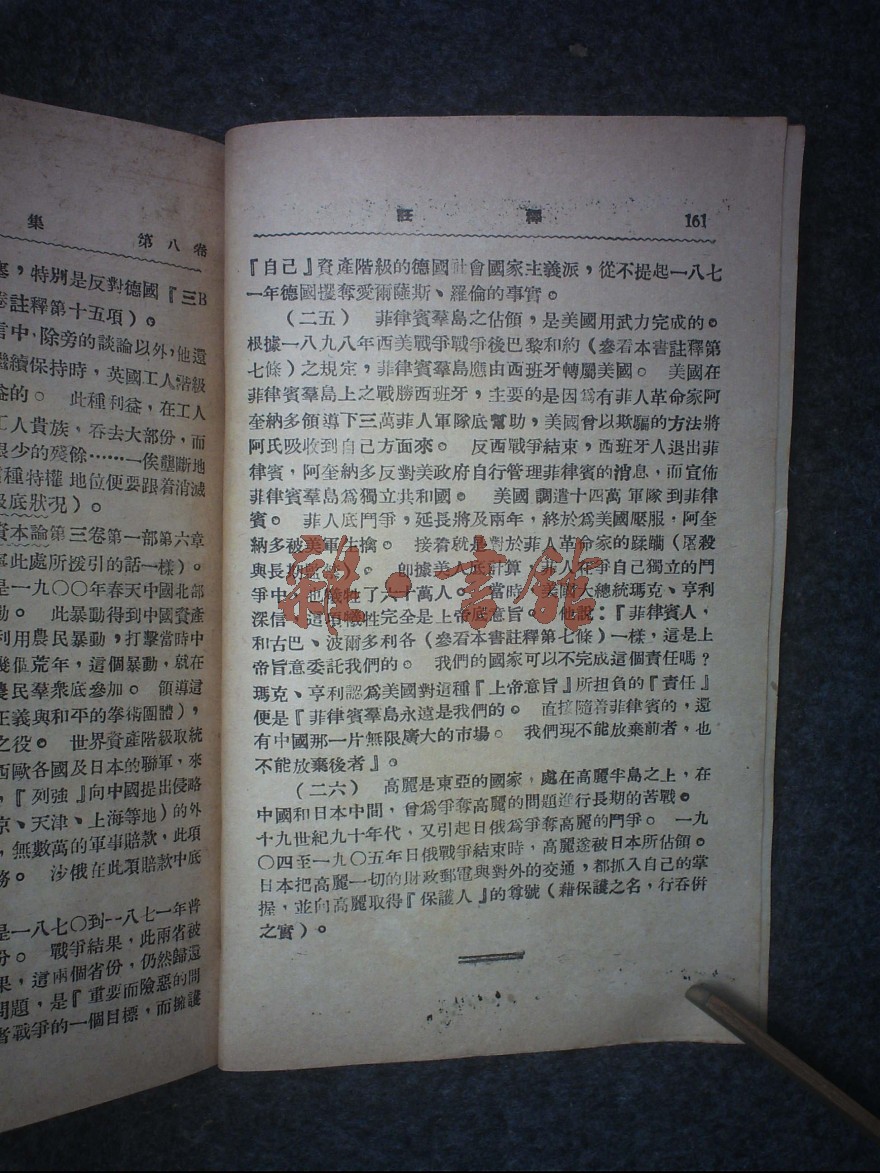 集 第八卷
塞，特別是反對德國『三B
卷註釋第十五項）。
言中，除旁的談論以外，他還
繼續保持時，英國工人階級
益的。 此種利益，在工人
工人貴族，吞去大部份，而
很少的殘餘……一俟壟斷地
這種特權地位便要跟着消滅
級底狀況）。
資本論第三卷第一部第六章
寧此處所援引的話一樣）。
是一九〇〇年春天中國北部
動。 此暴動得到中國資產
利用農民暴動，打擊當時中
幾個荒年，這個暴動，就在
農民羣衆底參加。 領導這
正義與和平的拳術團體），
之役。 世界資產階級取統
西歐各國及日本的聯軍，來
，『列強』向中國提出侵略
京、天津、上海等地）的外
，無數萬的軍事賠款，此項
務。 沙俄在此項賠款中底
是一八七〇到一八七一年普
份。 戰爭結果，此兩省被
果，這兩個省份，仍然歸還
問題，是『重要而險惡的問
者戰爭的一個目標，而擁護
註釋 161
『自己』資產階級的德國社會國家主義派，從不提起一八七
一年德國攫奪愛爾薩斯、羅倫的事實。
（二五） 菲律賓羣島之佔領，是美國用武力完成的。
根據一八九八年西美戰爭戰爭後巴黎和約（參看本書註釋第
七條）之規定，菲律賓羣島應由西班牙轉屬美國。 美國在
菲律賓羣島上之戰勝西班牙，主要的是因爲有菲人革命家阿
奎納多領導下三萬菲人軍隊底幫助，美國曾以欺騙的方法將
阿氏吸收到自己方面來。 反西戰爭結束，西班牙人退出菲
律賓，阿奎納多反對美政府自行管理菲律賓的消息，而宣佈
菲律賓羣島爲獨立共和國。 美國調遣十四萬軍隊到菲律
賓。 菲人底鬥爭，延長將及兩年，終於爲美國壓服，阿奎
納多被美軍生擒。 接着就是對於菲人革命家的蹂躪（屠殺
與長期監禁）。 卽據美人底計算，菲人在爭自己獨立的鬥
爭中，也犧牲了六十萬人。 當時，美國大總統瑪克、亨利
深信，這項犧牲完全是上帝底意旨。 他說：『菲律賓人，
和古巴、波爾多利各（參看本書註釋第七條）一樣，這是上
帝旨意委託我們的。 我們的國家可以不完成這個責任嗎？
瑪克、亨利認爲美國對這種『上帝意旨』所担負的『責任』
便是『菲律賓羣島永遠是我們的。 直接隨着菲律賓的，還
有中國那一片無限廣大的市場。 我們現不能放棄前者，也
不能放棄後者』。
（二六） 高麗是東亞的國家，處在高麗半島之上，在
中國和日本中間，曾爲爭奪高麗的問題進行長期的苦戰。
十九世紀九十年代，又引起日俄爲爭奪高麗的鬥爭。 一九
〇四至一九〇五年日俄戰爭結束時，高麗遂被日本所佔領。
日本把高麗一切的財政郵電與對外的交通，都抓入自己的掌
握，並向高麗取得『保護人』的尊號（藉保護之名，行吞併
之實）。
雜·書館